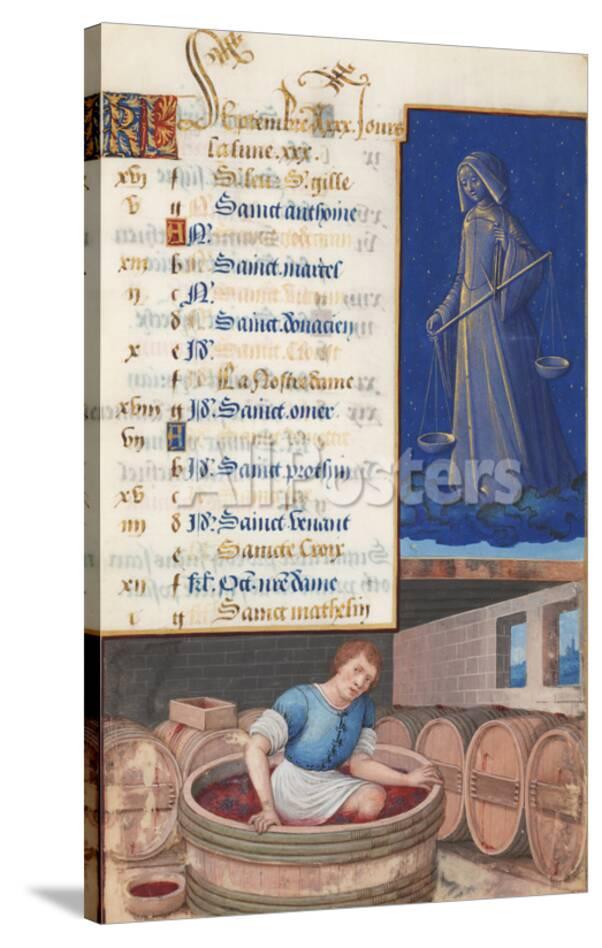 Septembre a xxx. Jours
La lune. xxx.
xvj f S. leu S. gille
v g Sainct anthoine
A N.
xiij b Sainct marcel
ij c N.
d Sainct donacien
x e Id.
f La Nostre dame
xviij g Id. Sainct omer
vij A
b Id. Sainct prothin
xv c
iiij d Id. Sainct venant
e Saincte Croix
xij f kl. Oct. nre dame
i g Sainct mathelin
AllPosters